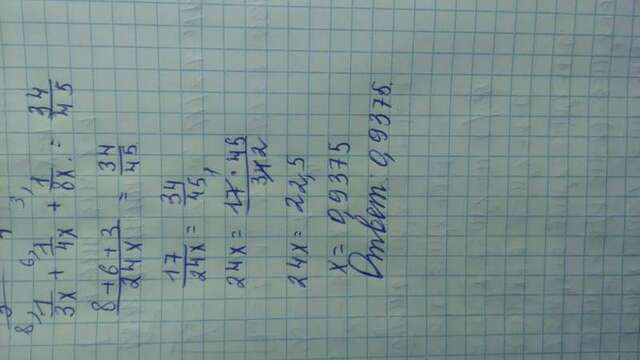 8) 1/3x + 6) 1/4x + 3) 1/8x. = 34/45
8+6+3/24x = 34/45
17/24x = 34/45,
24x = 17·45/34 2
24x = 22,5
x = 0,9375
Ответ: 0,9375.